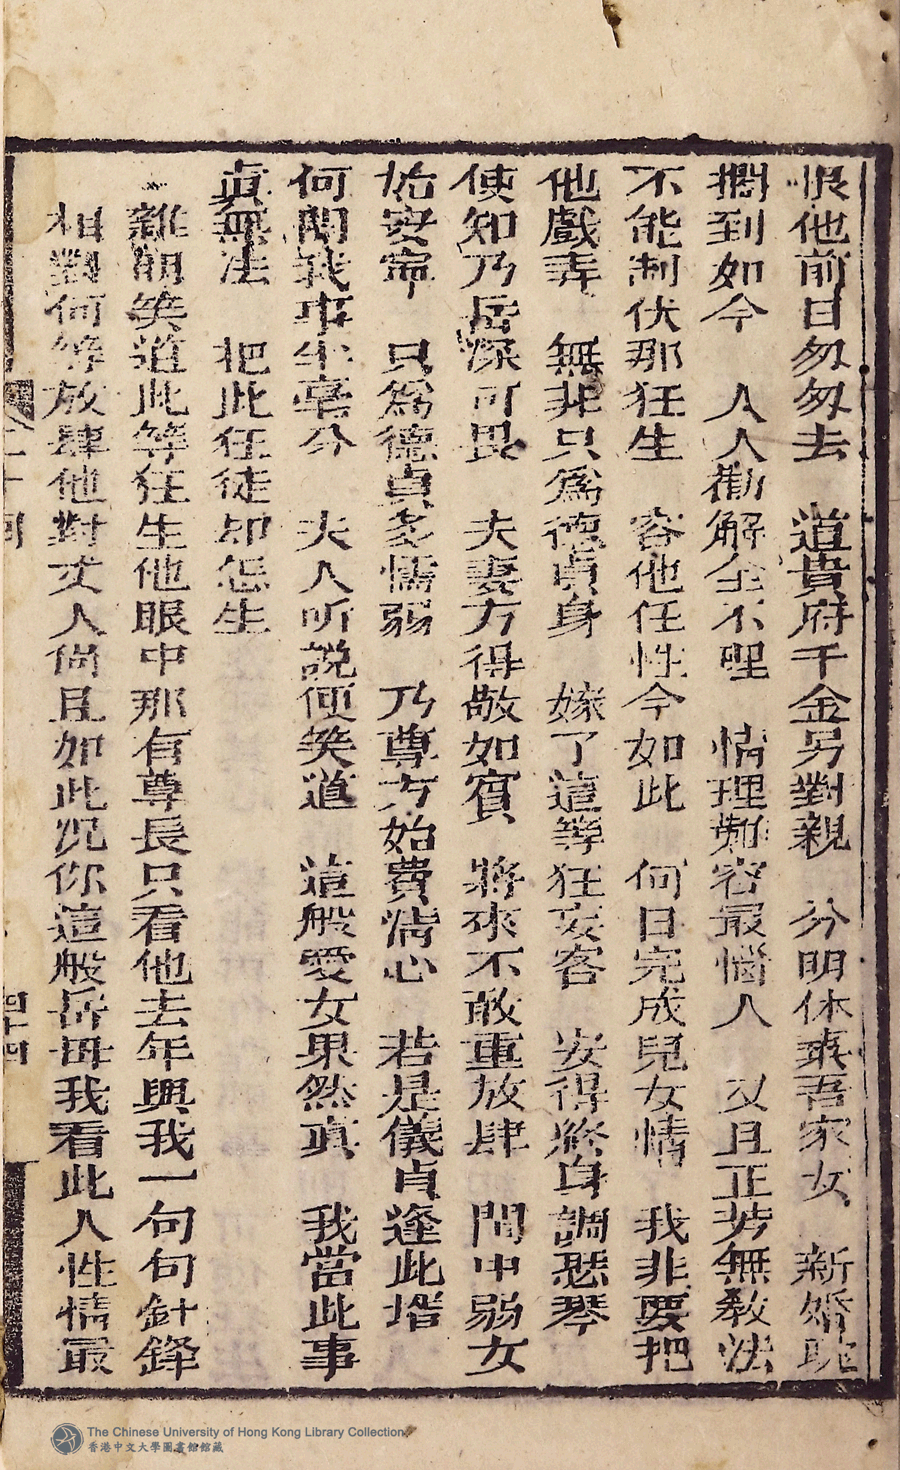 恨他前日匆匆去　道貴府千金另對親　分明休棄吾家女　新婚耽
擱到如今　人人勸解全不理　情理難容最惱人　又且正芳無教法
不能制伏那狂生　容他任性今如此　何日完成兒女情　我非要把
他戲弄　無非只為德貞身　嫁了這等狂妄客　安得終身調瑟琴
使知乃岳深可畏　夫妻方得敬如賓　將來不敢重放肆　閨中弱女
始安寧　只為德貞多懦弱　乃尊方始費清心　若是儀貞逢此壻
何關我事半毫分　夫人听說便笑道　這般愛女果然真　我當此事
真無法　把此狂徒却怎生
雖朗笑道此等狂生他眼中那有尊長只看他去年與我一句句針鋒
相對何等放肆他對丈人尚且如此况你這般岳母我看此人性情最
全十回
四十四
The Chinese University of Hong Kong Library Collection
香港中文大學圖書館館藏